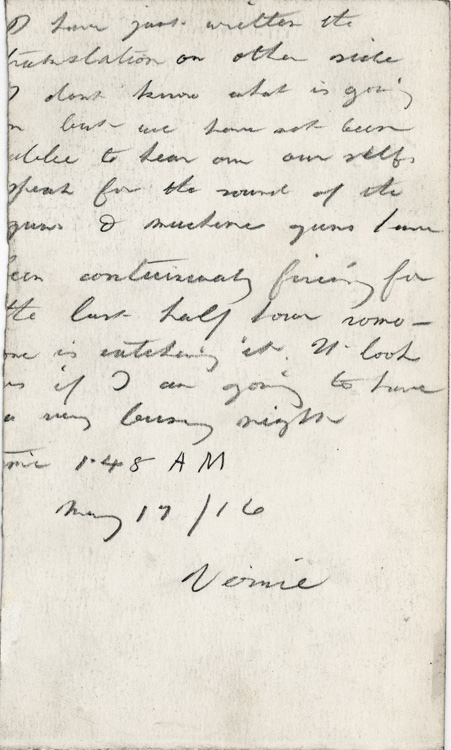 I have just written the
translation on other side
I dont know what is going
on but we have not been
ablee to hear our our selfs
speak for the sound of the
guns & machine guns have
been continuously fireing for
the last half hour some-
one is catching it. It look
as if I am going to have
a very busy night
Time 1.45 A M
May 17/16
Vernie